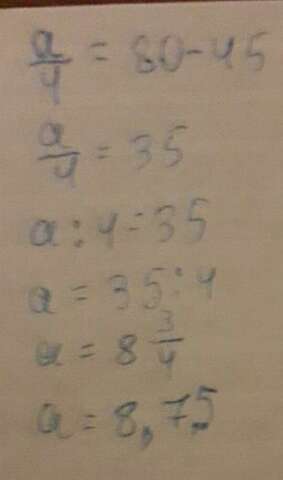 a/4 = 80-45
a/4 = 35
a : 4 = 35
a = 35 : 4
a = 8 3/4
a = 8,75